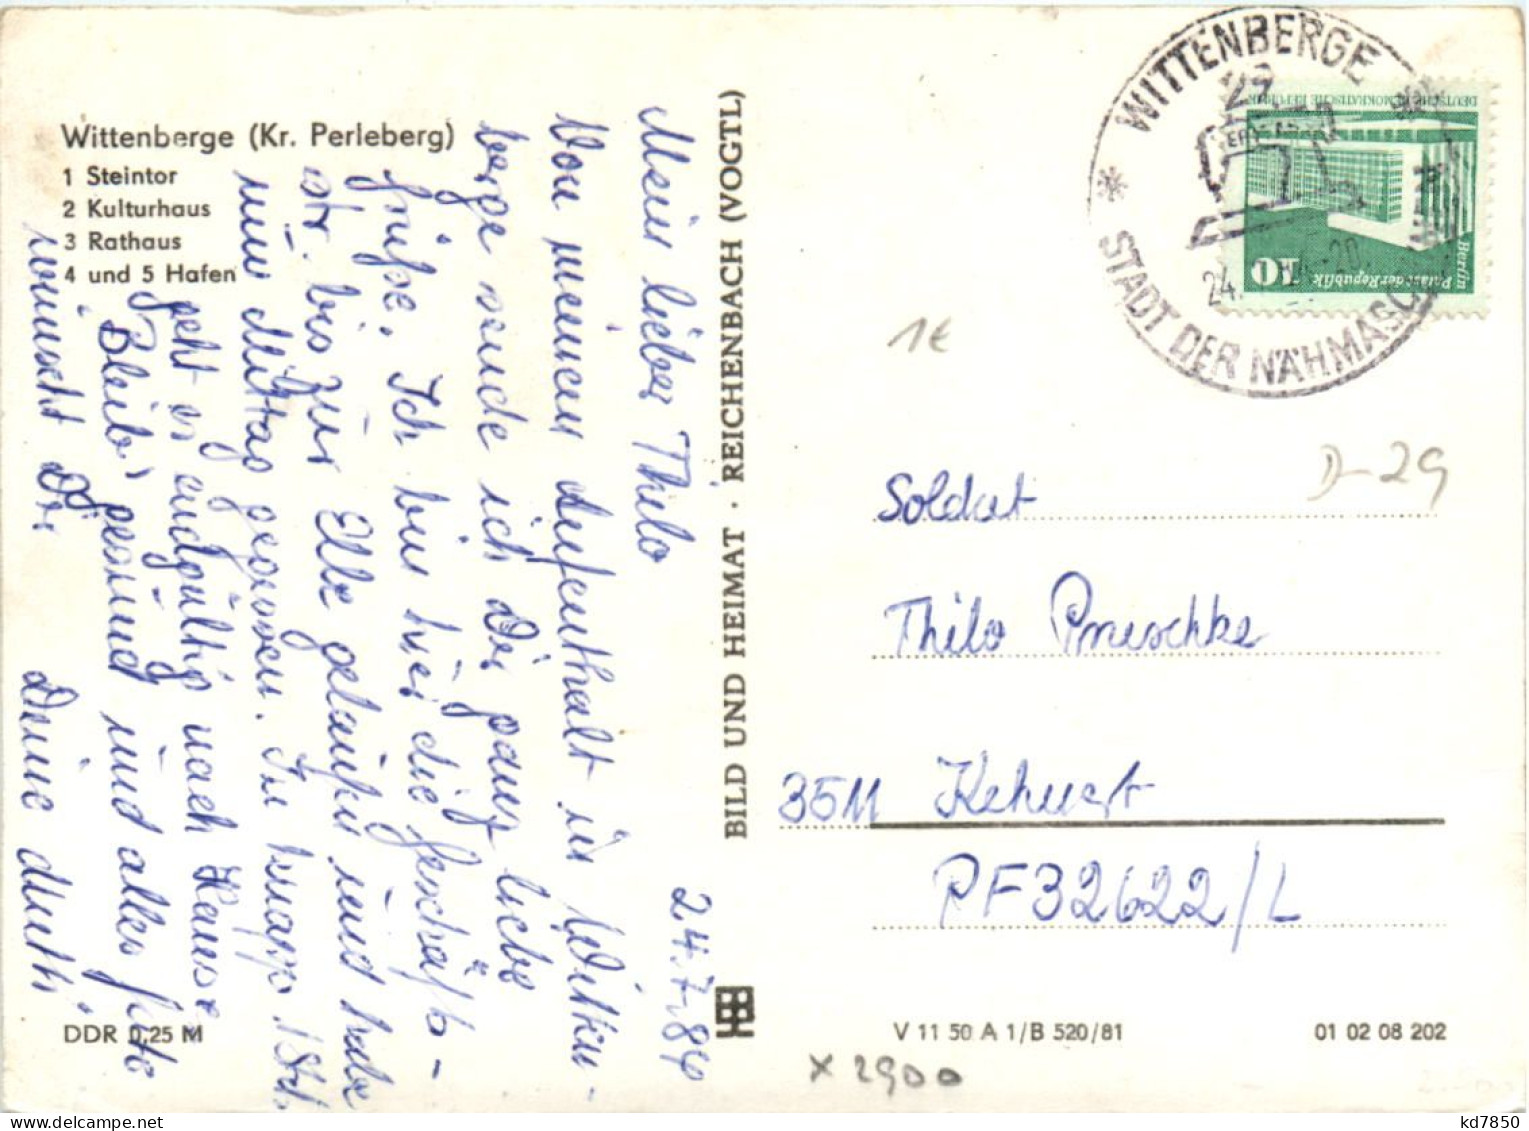 Wittenberge (Kr. Perleberg)
1 Steintor
2 Kulturhaus
3 Rathaus
4 und 5 Hafen
24.7.84
Mein lieber Thilo
Von meinem Aufenthalt in Witten-
berge sende ich Dir ganz liebe
Grüße. Ich bin hier die Geschäfts-
str. bis zur Elbe gelaufen und habe
nun Mittag gegessen. In knapp 1 Std.
geht es endgültig nach Hause,
Bleib gesund und alles Gute
wünscht Dir Deine Mutti.
DDR 0,25 M
BILD UND HEIMAT · REICHENBACH (VOGTL)
WITTENBERGE
STADT DER NÄHMASCH
24.
20
DEUTSCHE DEMOKRATISCHE REPUBLIK
Berlin
Palast der Republik
10
1€
D-29
Soldat
Thilo
3511 Kehnert
PF 32622/L
V 11 50 A 1/B 520/81
01 02 08 202
x 2900
kd7850